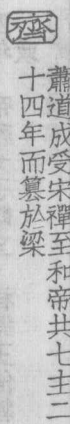 齊
蕭道成受宋禪至和帝共七主二
十四年而篡於梁